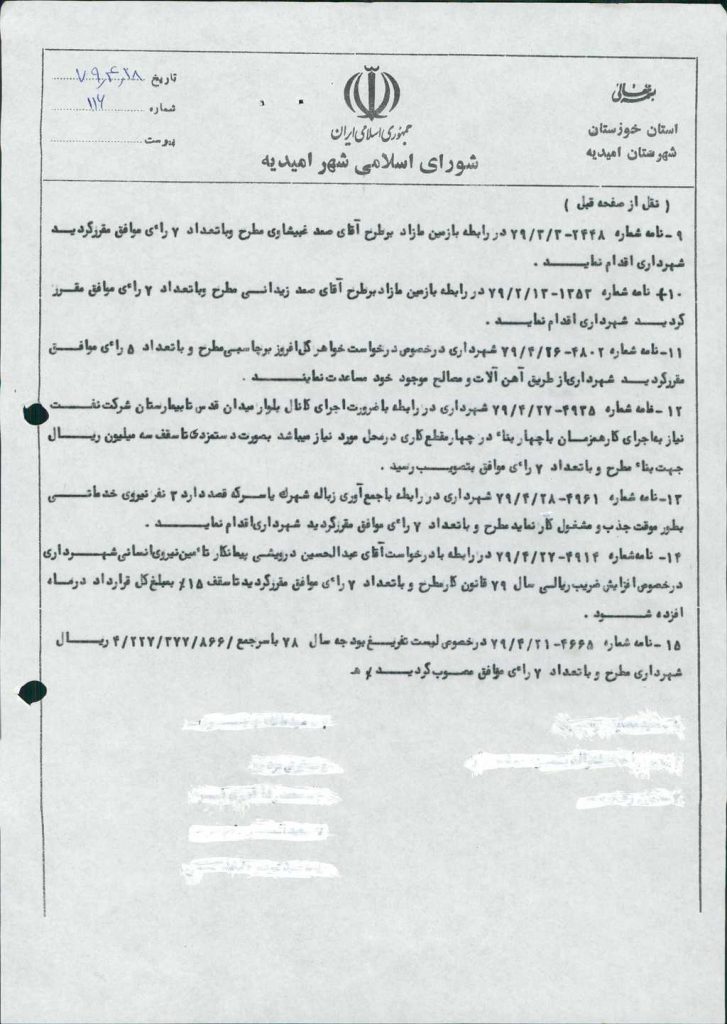 بسمه تعالی
استان خوزستان
شهرستان امیدیه
جمهوری اسلامی ایران
شورای اسلامی شهر امیدیه
تاریخ ۷۹٫۴٫۲۸
شماره ۱۱۶
پیوست
( نقل از صفحه قبل )
۹-نامه شماره ۲۴۴۸-۷۹/۳/۳ در رابطه بازمین مازاد برطرح آقای صمد غبیشاوی مطرح وباتعداد ۷ رائ موافق مقررگردید
شهرداری اقدام نماید .
۱۰- نامه شماره ۱۳۵۲-۷۹/۲/۱۳ در رابطه بازمین مازاد برطرح آقای صمد زیدانی مطرح وباتعداد ۷ رائ موافق مقرر
گردید شهرداری اقدام نماید .
۱۱-نامه شماره ۴۸۰۲-۷۹/۴/۲۶ شهرداری درخصوص درخواست خواهر گل افروز برچاسبی مطرح و باتعداد ۵ رائ موافق
مقررگردید شهرداری از طریق آهن آلات و مصالح موجود خود مساعدت نمایند .
۱۲-نامه شماره ۴۹۳۵-۷۹/۴/۲۷ شهرداری در رابطه با ضرورت اجرای کانال بلوار میدان قدس تابیمارستان شرکت نفت
نیاز به اجرای کار همزمان با چهار بناء در چهار مقطع کاری درمحل مورد نیاز میباشد بصورت دستمزدی تا سقف سه میلیون ریال
جهت بناء مطرح و باتعداد ۷ رائ موافق بتصویب رسید .
۱۳-نامه شماره ۴۹۶۱-۷۹/۴/۲۸ شهرداری در رابطه با جمع آوری زباله شهرک باسرکه قصد دارد ۳ نفر نیروی خدماتی
بطور موقت جذب و مشغول کار نماید مطرح و باتعداد ۷ رائ موافق مقررگردید شهرداری اقدام نماید .
۱۴- نامه شماره ۴۹۱۴-۷۹/۴/۲۷ در رابطه بادرخواست آقای عبدالحسین درویشی پیمانکار تائمین نیروی انسانی شهرداری
درخصوص افزایش ضریب ریالی سال ۷۹ قانون کار مطرح و باتعداد ۷ رائ موافق مقررگردید تا سقف ۱۵٪ بمبلغ کل قرارداد درماه
افزده شود .
۱۵-نامه شماره ۴۶۶۵-۷۹/۴/۲۱ درخصوص لیست تفریغ بودجه سال ۷۸ باسرجمع /۴/۲۲۷/۳۷۷/۸۶۶ ریال
شهرداری مطرح و باتعداد ۷ رائ موافق مصوب گردید